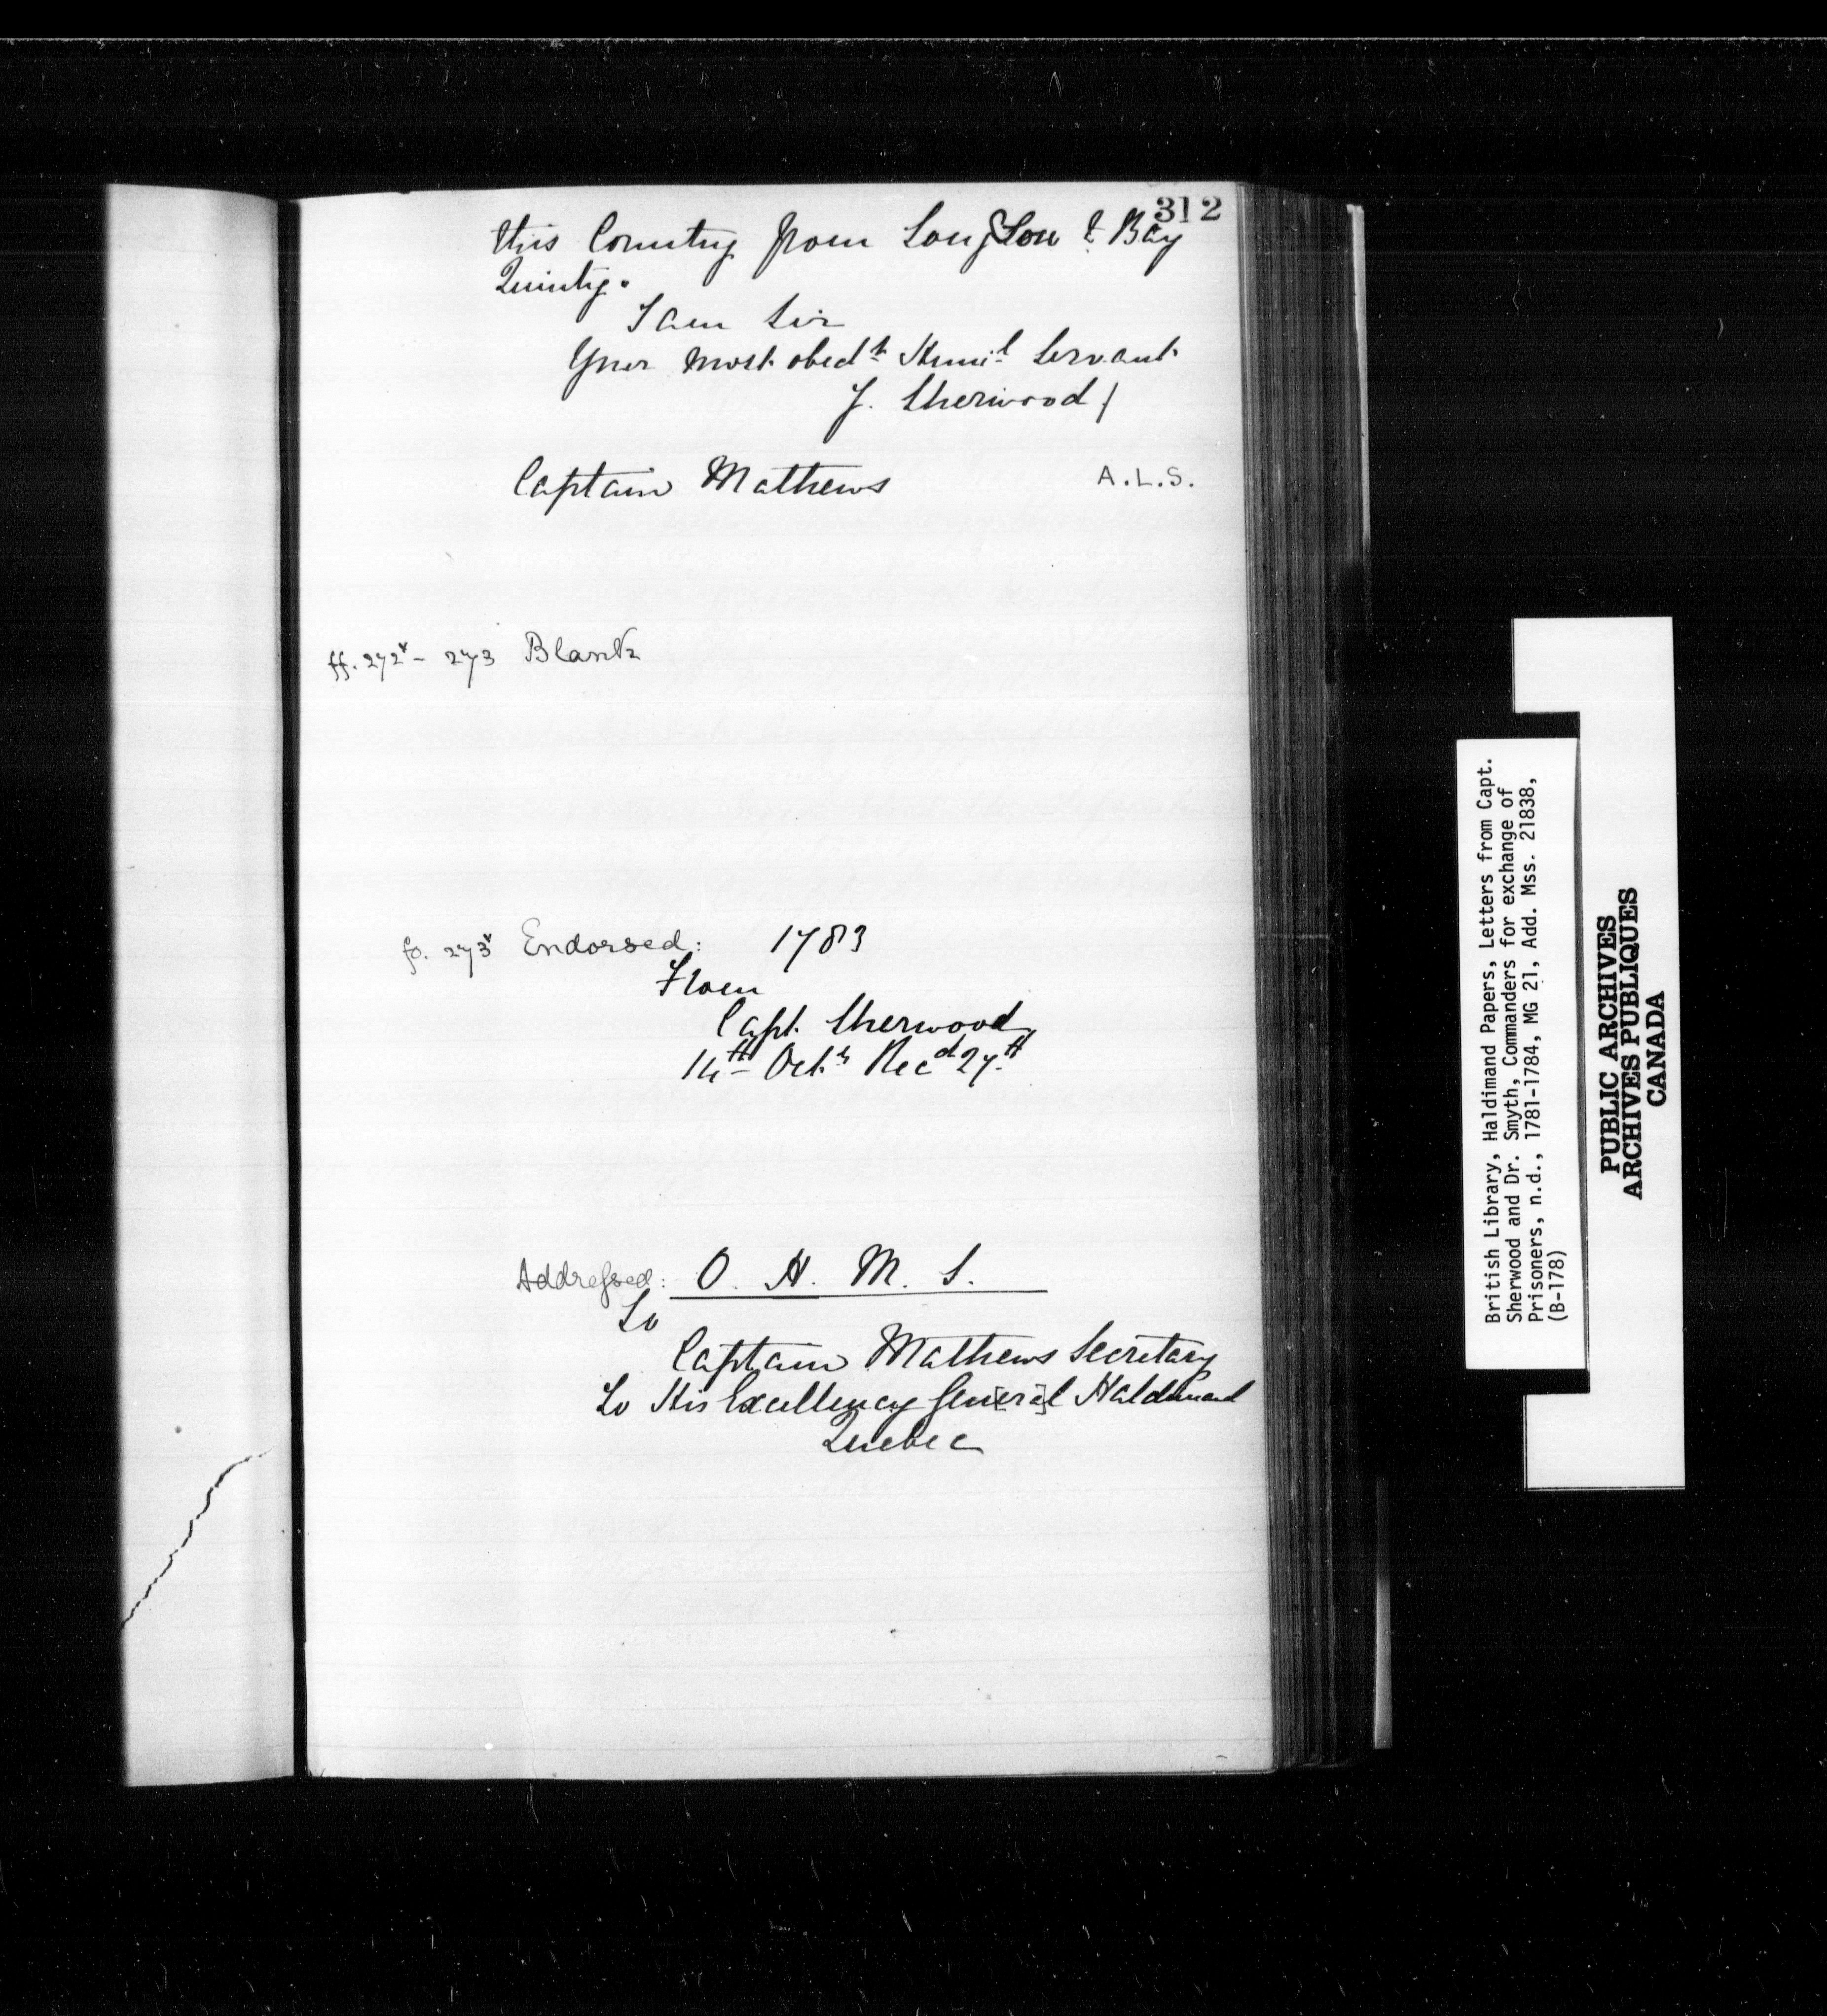 312
this Country from Long Sou & Bay
Quinty.
I am Sir
Your most obedt Huml Servant
J. Sherwood /
Captain Mathews A.L.S.
ff. 272v - 273 Blank
fo. 273v Endorsed: 1783
From
Capt. Sherwood
14th Octr Recd 27th
Addressed: O. H. M. S.
To
Captain Mathews Secretary
To His Excellency Gen[era]l Haldimand
Quebec
British Library, Haldimand Papers, Letters from Capt.
Sherwood and Dr. Smyth, Commanders for exchange of
Prisoners, n.d., 1781-1784, MG 21, Add. Mss. 21838,
(B-178)
PUBLIC ARCHIVES
ARCHIVES PUBLIQUES
CANADA